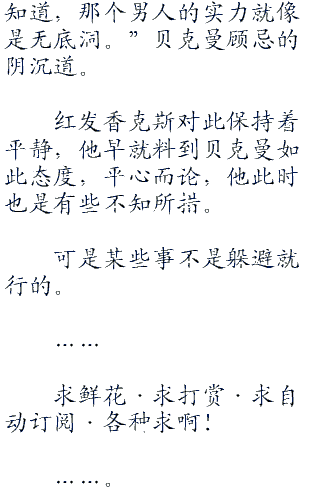 知道，那个男人的实力就像
是无底洞。”贝克曼顾忌的
阴沉道。
红发香克斯对此保持着
平静，他早就料到贝克曼如
此态度，平心而论，他此时
也是有些不知所措。
可是某些事不是躲避就
行的。
……
求鲜花·求打赏·求自
动订阅·各种求啊！
……。